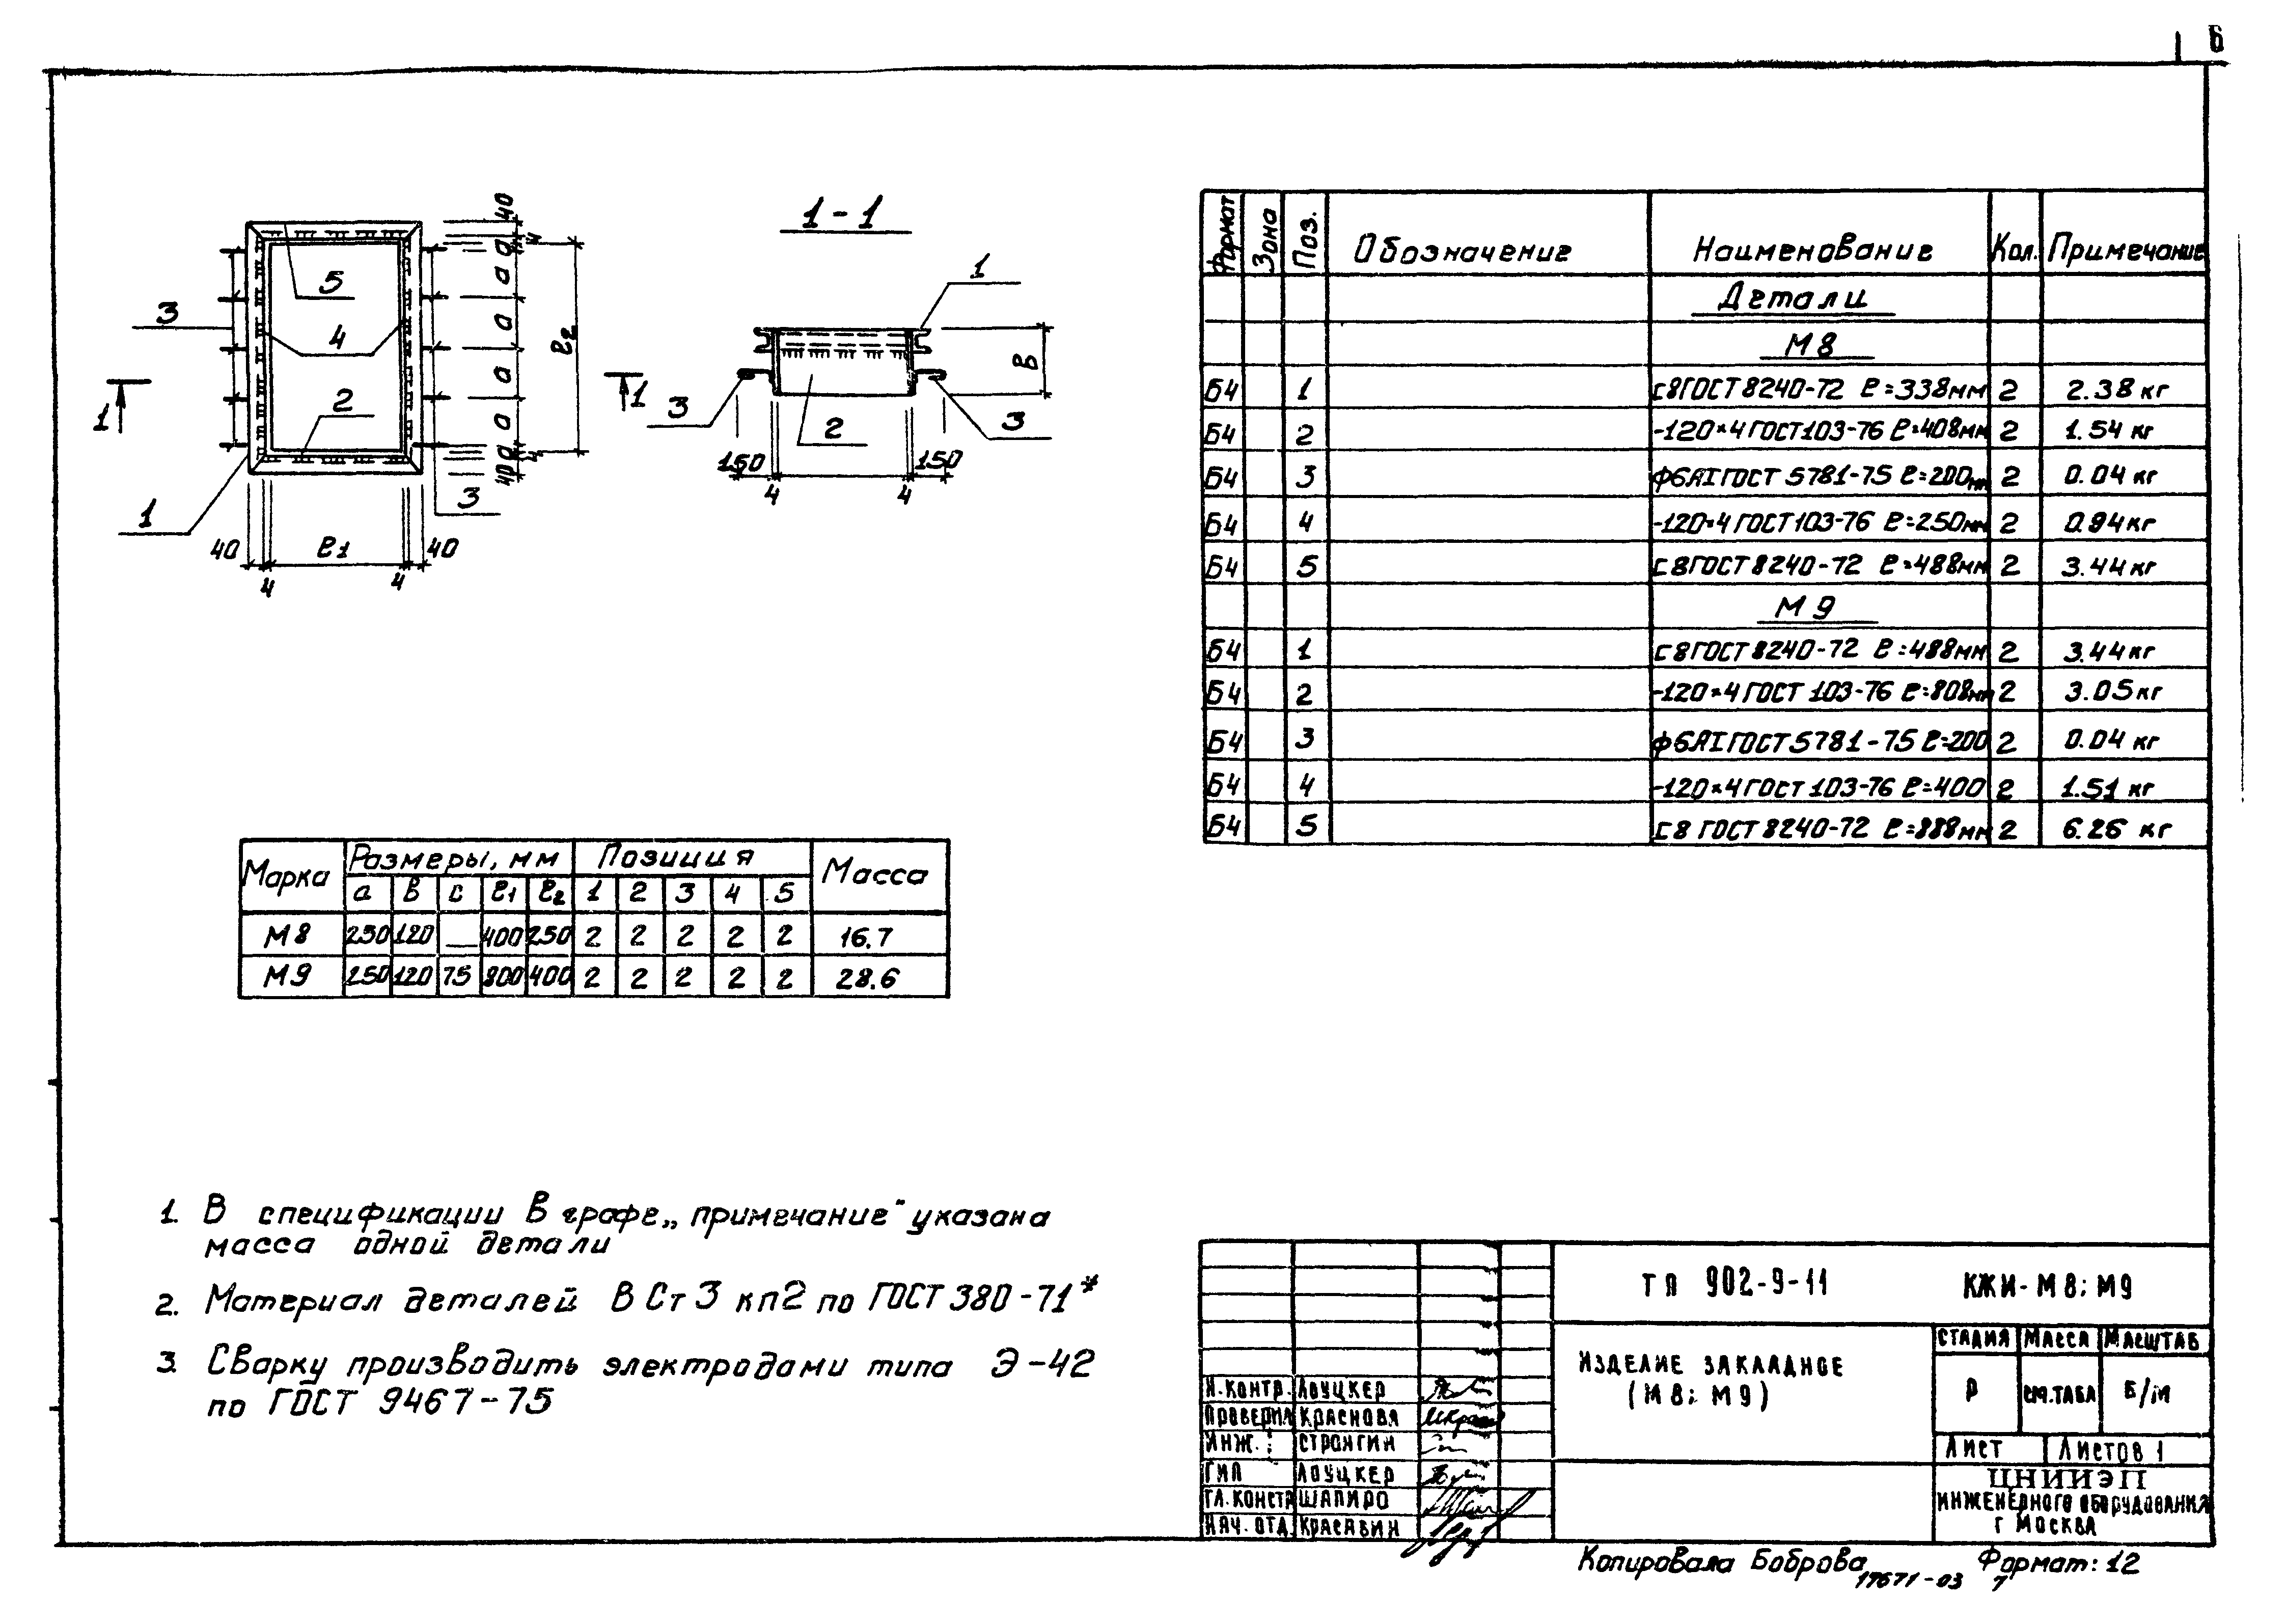 6
40
4
а
а
а
а
а
4
40
ℓ2
5
3
4
2
1
1
3
40
ℓ1
40
4
4
1-1
1
В
1
3
2
3
150
150
4
4
Формат Зона Поз. Обозначение Наименование Кол. Примечание
Детали
М8
Б4 1 с8ГОСТ 8240-72 ℓ=338мм 2 2.38 кг
Б4 2 -120×4 ГОСТ 103-76 ℓ=408мм 2 1.54 кг
Б4 3 ф6АI ГОСТ 5781-75 ℓ=200мм 2 0.04 кг
Б4 4 -120×4 ГОСТ 103-76 ℓ=250мм 2 0.94 кг
Б4 5 С8ГОСТ 8240-72 ℓ=488мм 2 3.44 кг
М9
Б4 1 с8ГОСТ 8240-72 ℓ=488мм 2 3.44 кг
Б4 2 -120×4 ГОСТ 103-76 ℓ=808мм 2 3.05 кг
Б4 3 ф6АI ГОСТ 5781-75 ℓ=200 2 0.04 кг
Б4 4 -120×4 ГОСТ 103-76 ℓ=400 2 1.51 кг
Б4 5 с8 ГОСТ 8240-72 ℓ=888мм 2 6.26 кг
Марка Размеры, мм Позиция Масса
а В с ℓ1 ℓ2 1 2 3 4 5
М8 250 120 — 400 250 2 2 2 2 2 16.7
М9 250 120 75 800 400 2 2 2 2 2 28.6
1. В спецификации в графе „примечание" указана
масса одной детали
2. Материал деталей ВСт3 кп2 по ГОСТ 380-71*
3. Сварку производить электродами типа Э-42
по ГОСТ 9467-75
ТП 902-9-11 КЖИ-М8; М9
ИЗДЕЛИЕ ЗАКЛАДНОЕ
(М8; М9)
СТАДИЯ МАССА МАСШТАБ
Р СМ.ТАБЛ Б/М
ЛИСТ ЛИСТОВ 1
ЦНИИЭП
ИНЖЕНЕРНОГО ОБОРУДОВАНИЯ
Г МОСКВА
Н.КОНТР. ЛОУЦКЕР
ПРОВЕРИЛ КРАСНОВА
ИНЖ. СТРОНГИН
ГИП ЛОУЦКЕР
ГЛ.КОНСТР ШАПИРО
НАЧ.ОТД. КРАСАВИН
Копировала Боброва Формат: 12
17671-03 7